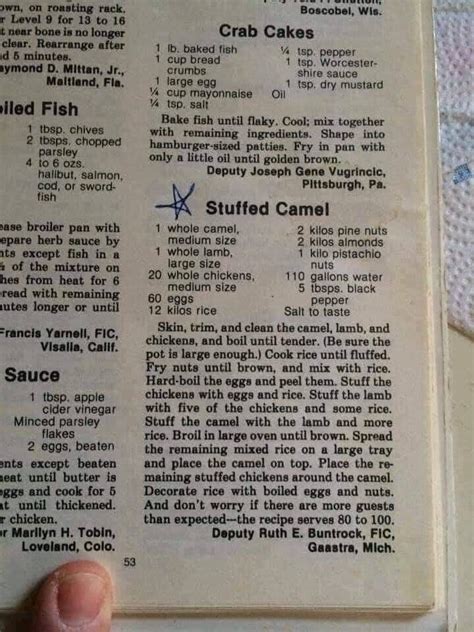 own, on roasting rack.
r Level 9 for 13 to 16
t near bone is no longer
clear. Rearrange after
d 5 minutes.
aymond D. Mittan, Jr.,
Maitland, Fla.
iled Fish
1 tbsp. chives
2 tbsps. chopped
parsley
4 to 6 ozs.
halibut, salmon,
cod, or sword-
fish
ease broiler pan with
epare herb sauce by
nts except fish in a
of the mixture on
hes from heat for 6
read with remaining
nutes longer or until
Francis Yarnell, FIC,
Visalia, Calif.
Sauce
1 tbsp. apple
cider vinegar
Minced parsley
flakes
2 eggs, beaten
ents except beaten
heat until butter is
eggs and cook for 5
t until thickened.
r chicken.
or Marilyn H. Tobin,
Loveland, Colo.
Boscobel, Wis.
Crab Cakes
1 lb. baked fish
1 cup bread
crumbs
1 large egg
¼ cup mayonnaise
¼ tsp. salt
¼ tsp. pepper
1 tsp. Worcester-
shire sauce
1 tsp. dry mustard
Oil
Bake fish until flaky. Cool; mix together
with remaining ingredients. Shape into
hamburger-sized patties. Fry in pan with
only a little oil until golden brown.
Deputy Joseph Gene Vugrincic,
Pittsburgh, Pa.
Stuffed Camel
1 whole camel,
medium size
1 whole lamb,
large size
20 whole chickens,
medium size
60 eggs
12 kilos rice
2 kilos pine nuts
2 kilos almonds
1 kilo pistachio
nuts
110 gallons water
5 tbsps. black
pepper
Salt to taste
Skin, trim, and clean the camel, lamb, and
chickens, and boil until tender. (Be sure the
pot is large enough.) Cook rice until fluffed.
Fry nuts until brown, and mix with rice.
Hard-boil the eggs and peel them. Stuff the
chickens with eggs and rice. Stuff the lamb
with five of the chickens and some rice.
Stuff the camel with the lamb and more
rice. Broil in large oven until brown. Spread
the remaining mixed rice on a large tray
and place the camel on top. Place the re-
maining stuffed chickens around the camel.
Decorate rice with boiled eggs and nuts.
And don't worry if there are more guests
than expected—the recipe serves 80 to 100.
Deputy Ruth E. Buntrock, FIC,
Gaastra, Mich.
53